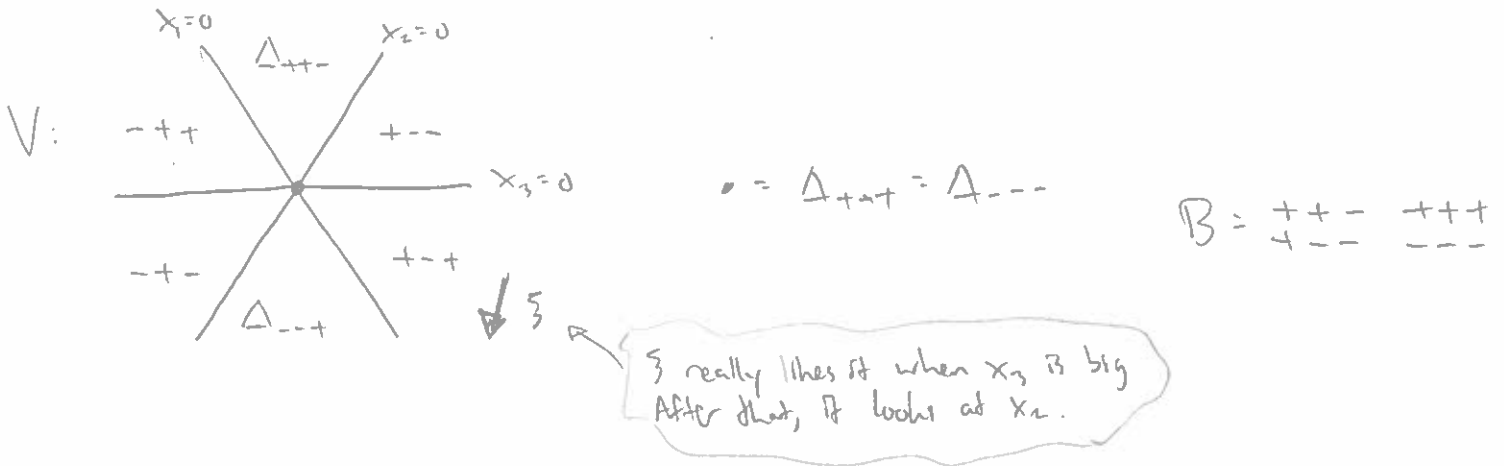 x₁=0
x₂=0
Δ₊₊₋
V:
-++
+--
x₃=0
• = Δ₊₊₊ = Δ₋₋₋
B = ++- +++
+-- ---
-+-
+-+
Δ₋₋₊
ξ
ξ really likes it when x₃ is big
After that, it looks at x₂.